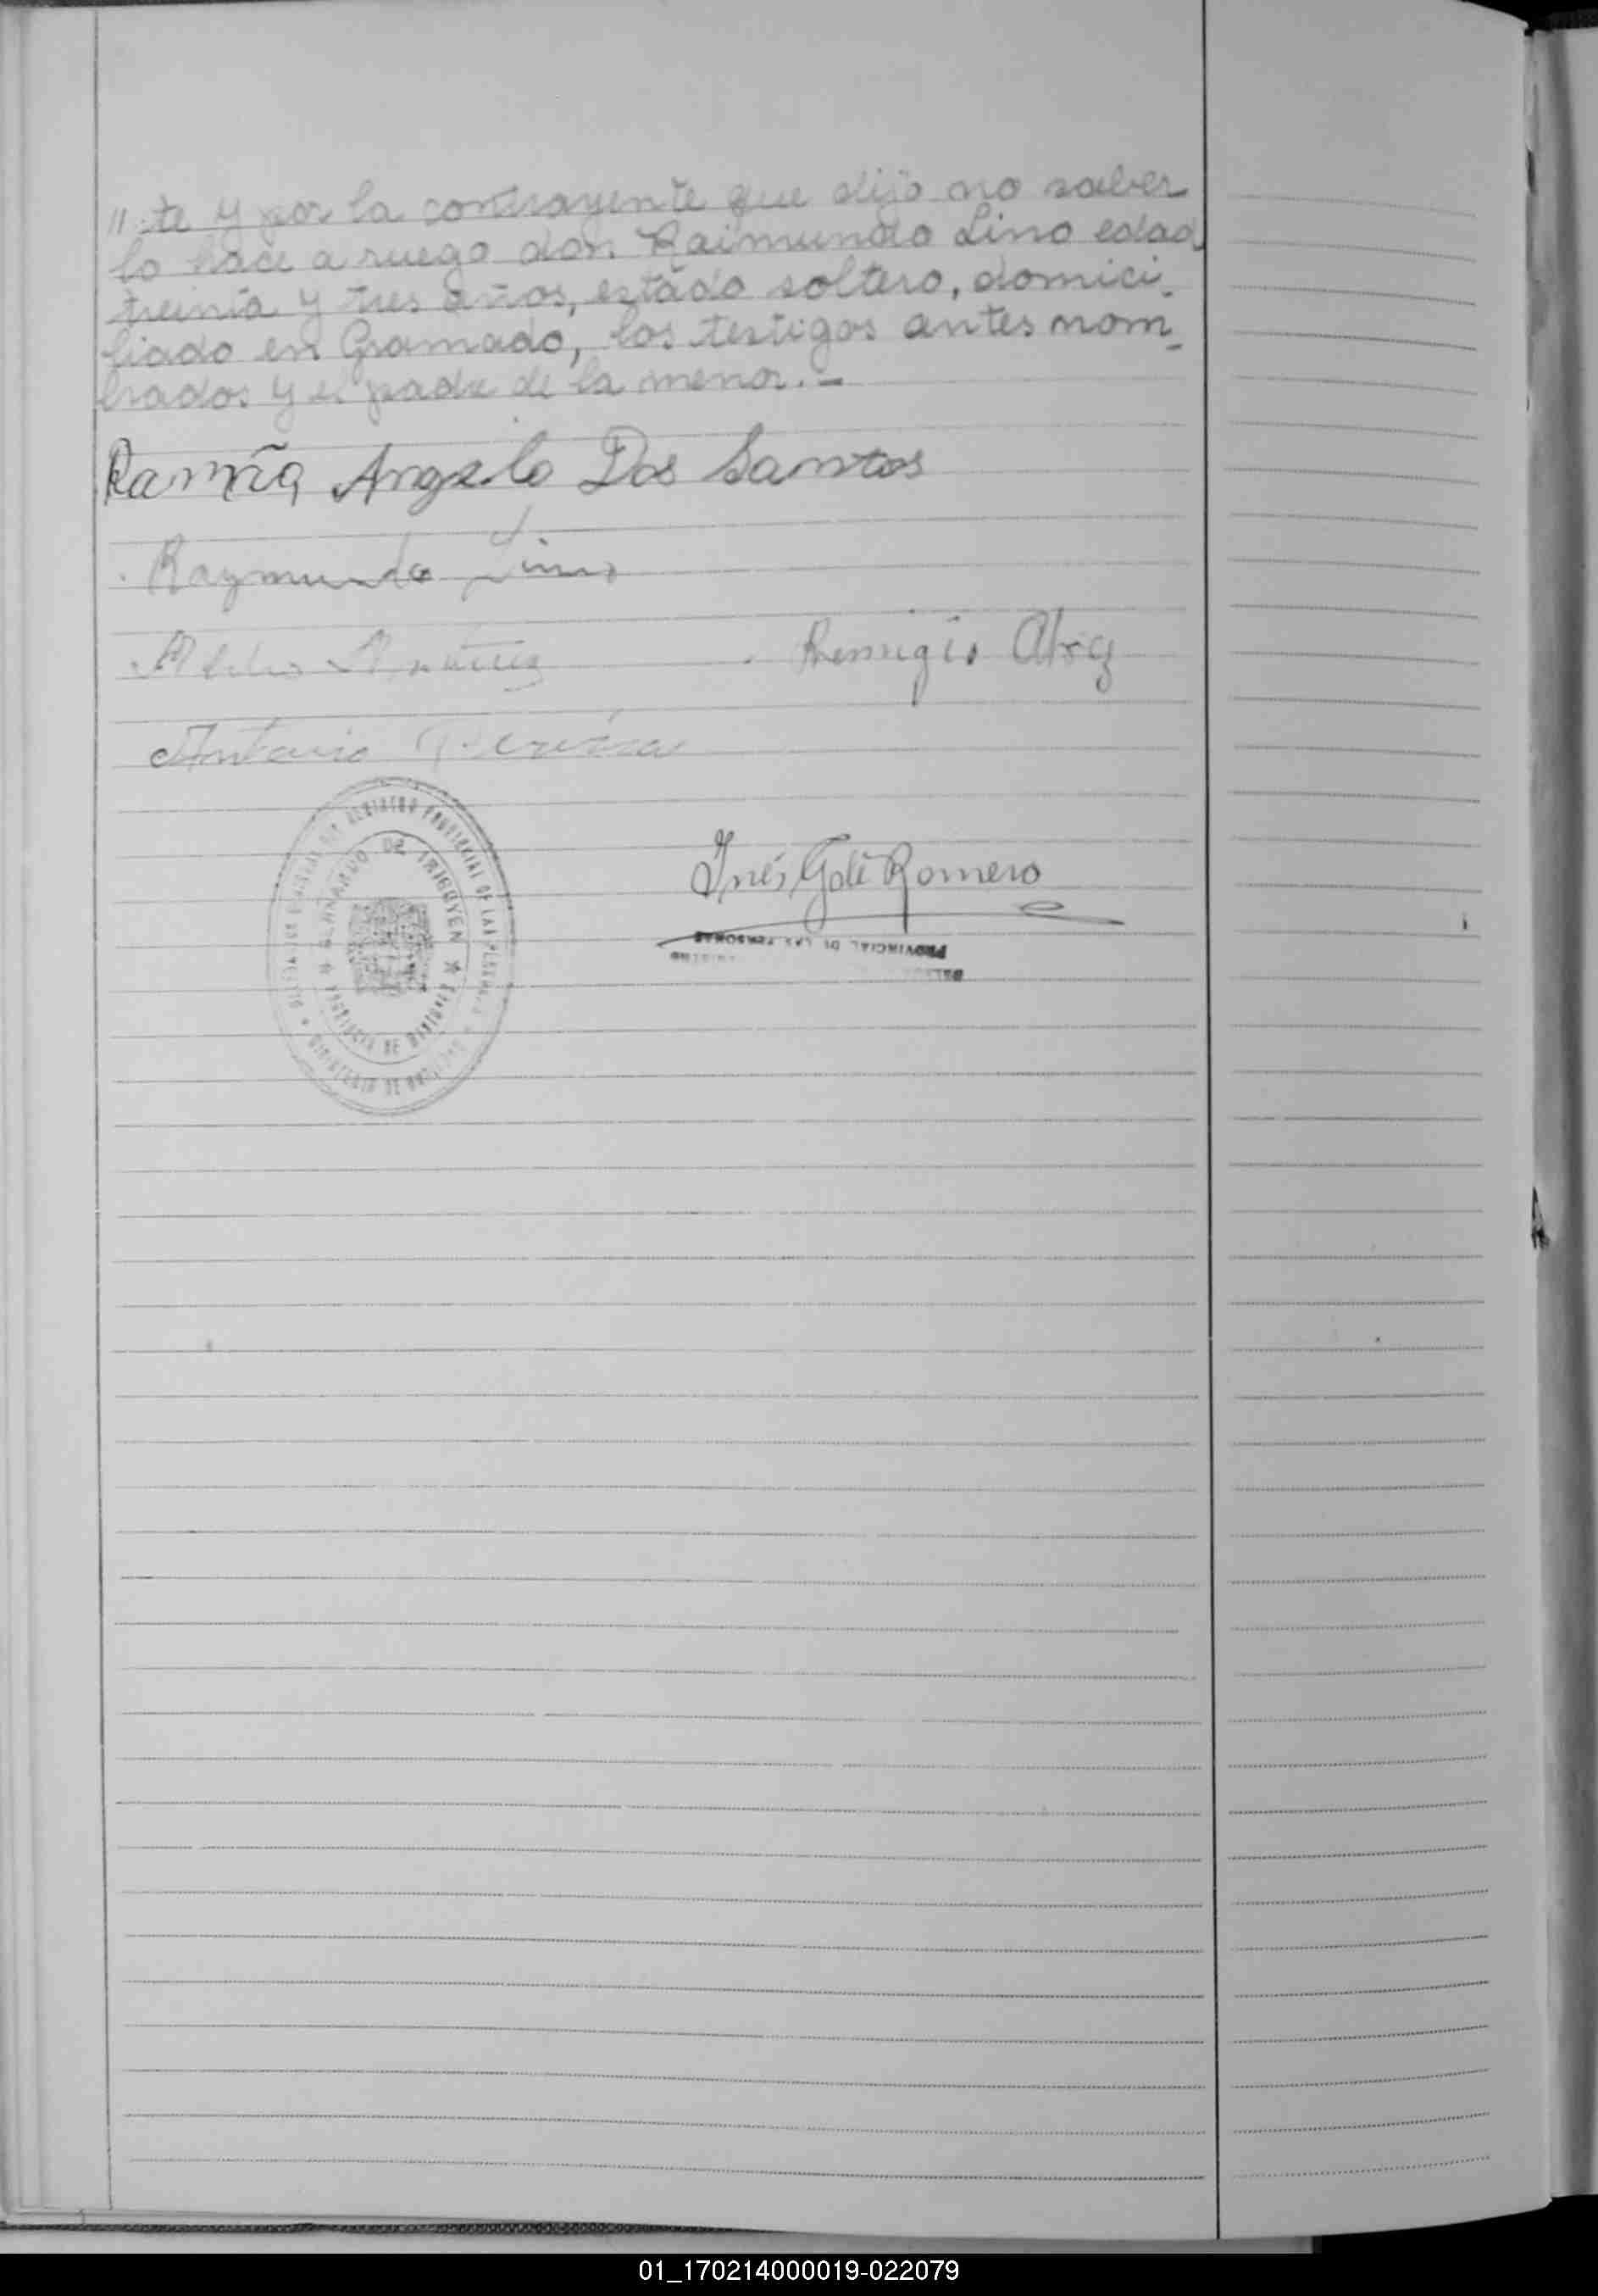 "te y por la contrayente que dijo no saber
lo hace a ruego don Raimundo Lino edad
treinta y tres años, estado soltero, domici_
liado en Gramado, los testigos antes nom_
brados y el padre de la menor. _
Angelo Dos Santos
Raymundo Lino
Remigio
Antonio
REGISTRO PROVINCIAL DE LAS PERSONAS
BERNARDO DE IRIGOYEN
PROVINCIA DE MISIONES
MINISTERIO DE
Inés G. de Romero
PROVINCIAL DE LAS PERSONAS
01_170214000019-022079